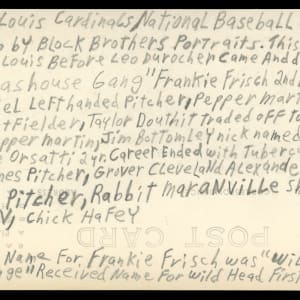 Louis Cardinals, National Baseball
by Block Brothers Portraits. This
Louis Before Leo Durocher Came And D
ashouse Gang" Frankie Frisch 2nd
el Lefthanded Pitcher, Pepper mart
tFielder, Taylor Douthit traded off to
pper martin, Jim Bottomley nick named
e Orsatti, 2 yr. Career Ended with Tuberc
mes Pitcher, Grover Cleveland Alexande
Pitcher, Rabbit maranville sh
Chick Hafey
POST CARD
Name For Frankie Frisch was "Wi
nge" Received Name For Wild Head First